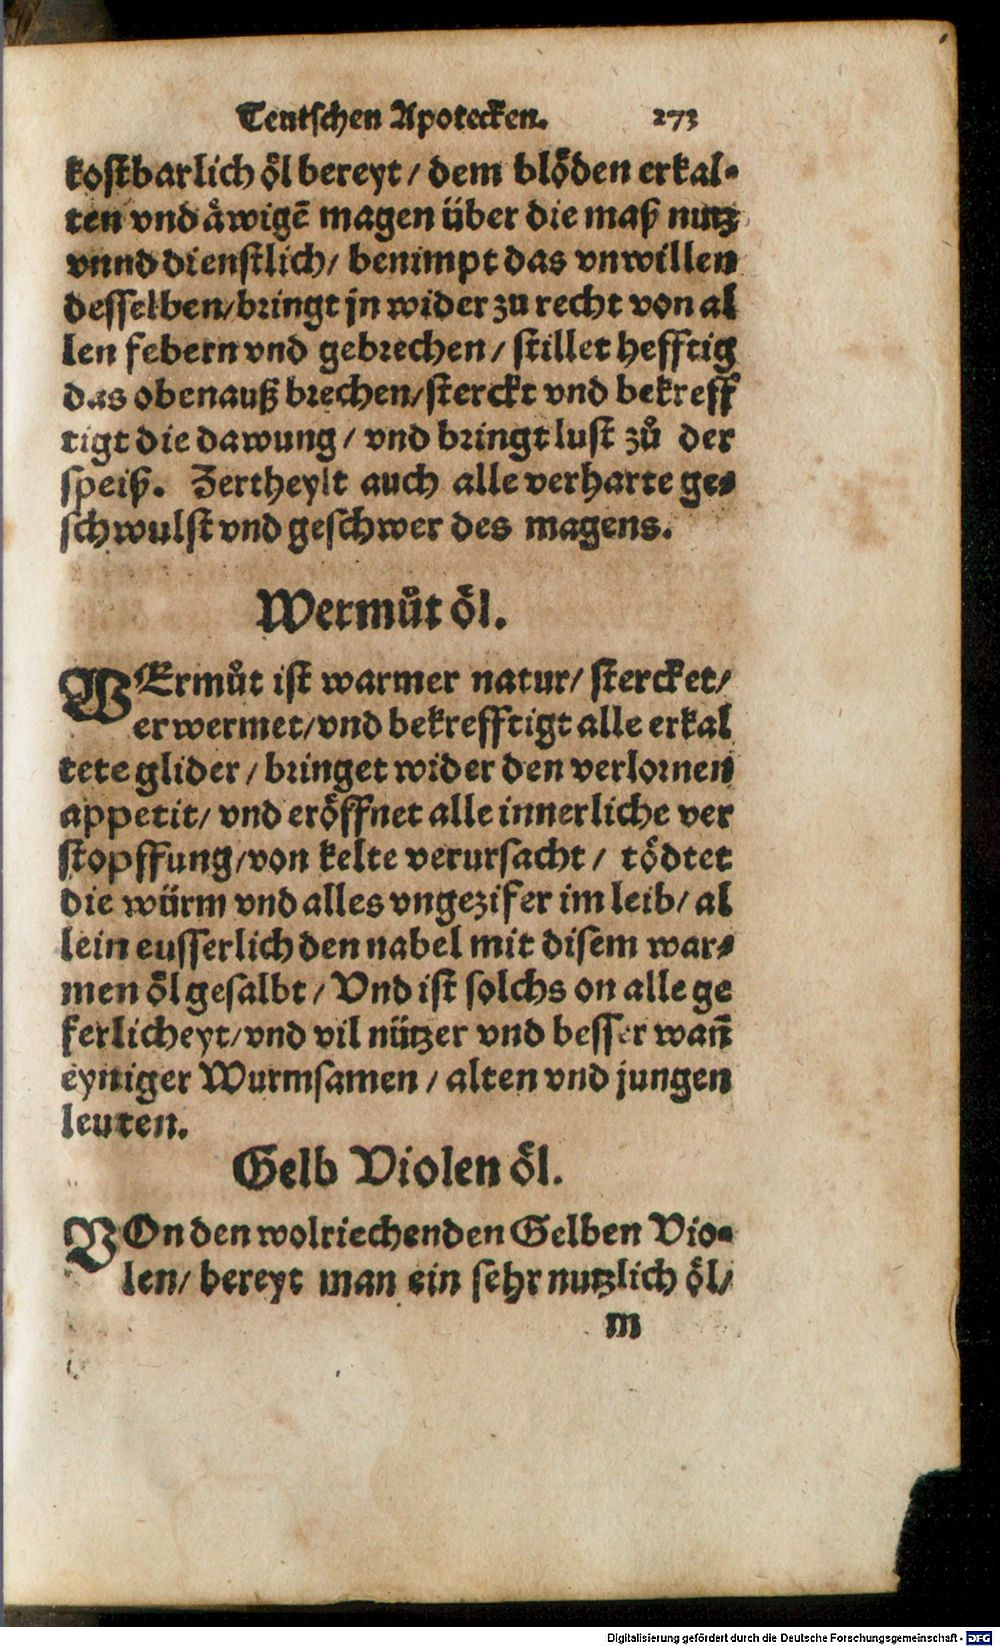 Teutschen Apotecken. 273
kostbarlich öl bereyt / dem blöden erkal-
ten vnd äwigē magen über die maß nutz
vnnd dienstlich / benimpt das vnwillen
desselben / bringt jn wider zu recht von al
len febern vnd gebrechen / stillet hefftig
das obenauß brechen / sterckt vnd bekreff
tigt die dawung / vnd bringt lust zů der
speiß. Zertheylt auch alle verharte ge-
schwulst vnd geschwer des magens.
Wermůt öl.
WErmůt ist warmer natur / stercket /
erwermet / vnd bekrefftigt alle erkal
tete glider / bringet wider den verlornen
appetit / vnd eröffnet alle innerliche ver
stopffung / von kelte verursacht / tödtet
die würm vnd alles vngezifer im leib / al
lein eusserlich den nabel mit disem war-
men öl gesalbt / Vnd ist solchs on alle ge
ferlicheyt / vnd vil nützer vnd besser wañ
eyniger Wurmsamen / alten vnd jungen
leuten.
Gelb Violen öl.
VOn den wolriechenden Gelben Vio-
len / bereyt man ein sehr nutzlich öl /
m
Digitalisierung gefördert durch die Deutsche Forschungsgemeinschaft - DFG